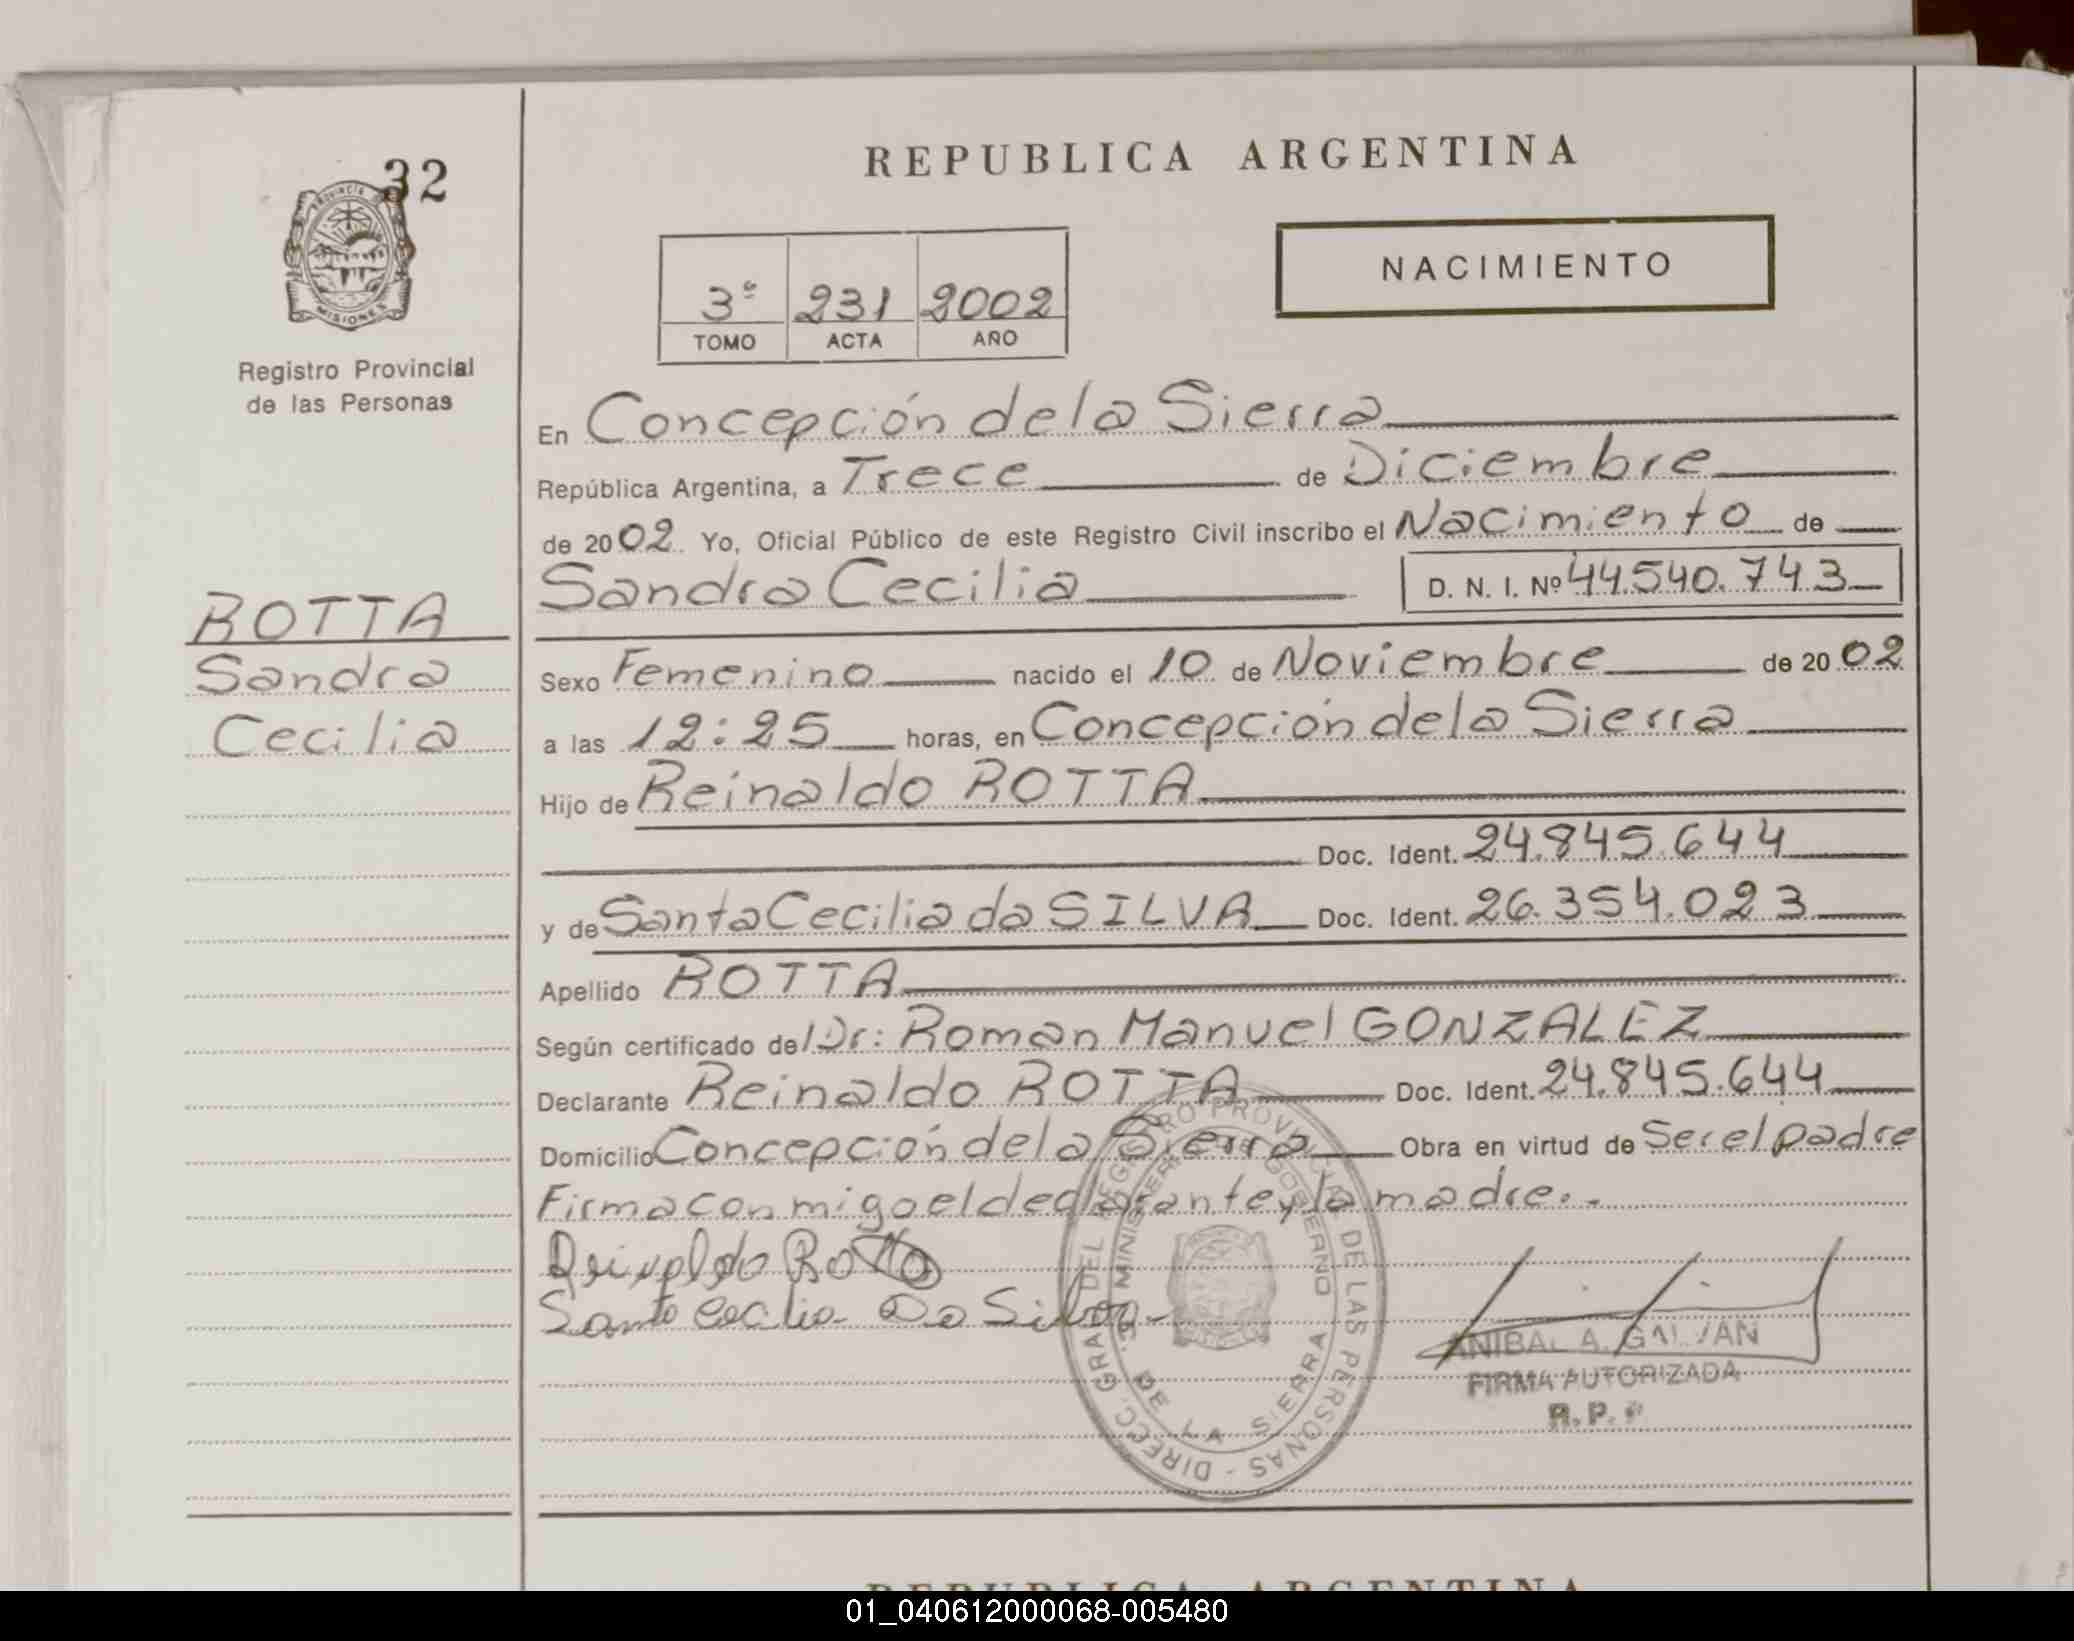 32
PROVINCIA
MISIONES
Registro Provincial
de las Personas
REPUBLICA ARGENTINA
NACIMIENTO
3º 231 2002
TOMO ACTA AÑO
En Concepción de la Sierra
República Argentina, a Trece de Diciembre
de 2002. Yo, Oficial Público de este Registro Civil inscribo el Nacimiento de
Sandra Cecilia D. N. I. Nº 44.540.743
ROTTA
Sandra
Cecilia
Sexo Femenino nacido el 10 de Noviembre de 2002
a las 12:25 horas, en Concepción de la Sierra
Hijo de Reinaldo ROTTA
Doc. Ident. 24.845.644
y de Santa Cecilia da SILVA Doc. Ident. 26.354.023
Apellido ROTTA
Según certificado del Dr: Roman Manuel GONZALEZ
Declarante Reinaldo ROTTA Doc. Ident. 24.845.644
Domicilio Concepción de la Sierra Obra en virtud de Ser el padre
Firma conmigo el declarante y la madre..
Reinaldo Rotta
Santa Cecilia Da Silva
DIREC. GRAL. DEL REGISTRO PROVINCIAL DE LAS PERSONAS
DE LA SIERRA
ANIBAL A. GALVAN
FIRMA AUTORIZADA
R.P.P
REPUBLICA ARGENTINA
01_040612000068-005480